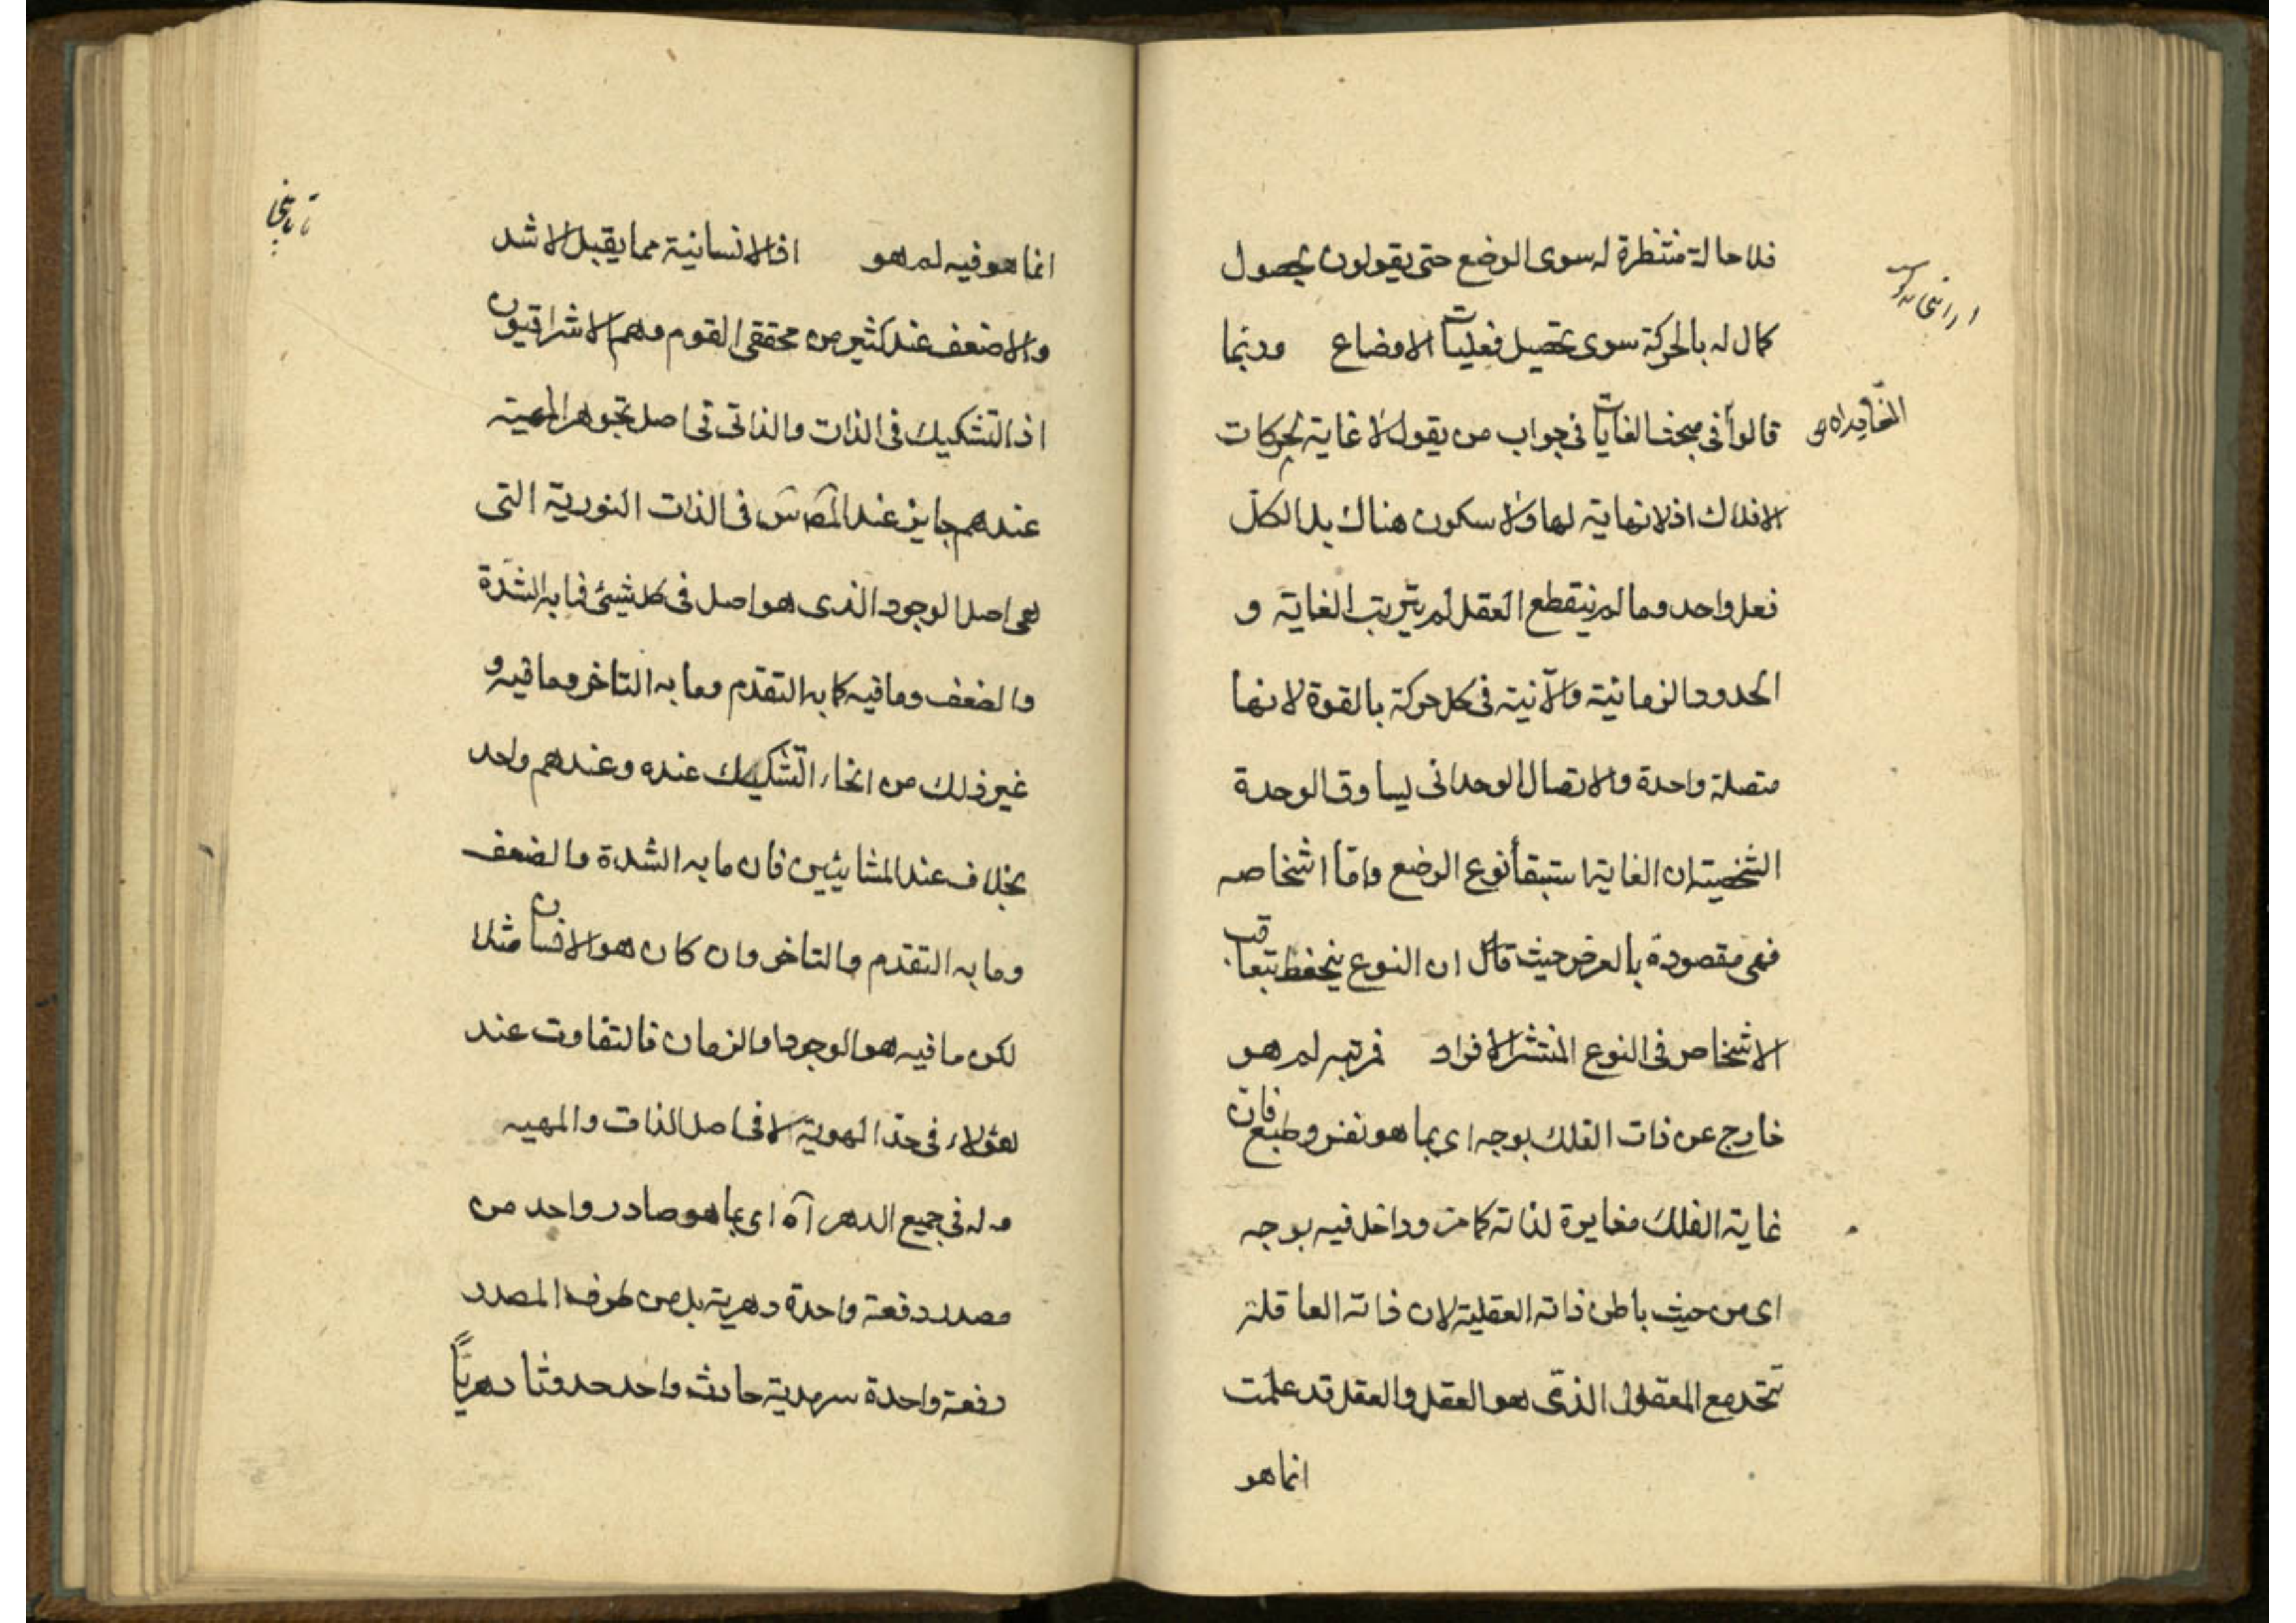 فلا حالة منتظرة له سوى الوضع حتى يقولون بحصول
كمال له بالحركة سوى تحصيل فعليات الاوضاع وربما
قالوا فى مبحث الغايات فى جواب من يقول لا غاية لحركات
الافلاك اذ لا نهاية لها ولا سكون هناك بل الكل
فعل واحد وما لم ينقطع العقل لم يترتب الغاية و
الحدود الزمانية والآنية فى كل حركة بالقوة لانها
متصلة واحدة والاتصال الوحدانى يساوق الوحدة
الشخصية ان الغاية استبقاء نوع الوضع واما اشخاصه
فهى مقصودة بالعرض حيث قال ان النوع ينحفظ بتعاقب
الاشخاص فى النوع المنتشر الافراد فمرتبه لم هو
خارج عن ذات الفلك بوجه اى بما هو نفس وطبع فان
غاية الفلك مغايرة لذاته كما مر وداخل فيه بوجه
اى من حيث باطن ذاته العقلية لان ذاته العاقلة
تتحد مع المعقول الذى هو العقل والعقل قد علمت
انما هو
انما هو فيه لم هو اذ الانسانية مما يقبل الاشد
والاضعف عند كثير من محققى القوم وهم الاشراقيون
اذ التشكيك فى الذات والذاتى فى اصل تجوهر المهية
عندهم جايز عند المص فى الذات النورية التى
هى اصل الوجود الذى هو اصل فى كل شيئ فما به الشدة
والضعف وما فيه كما به التقدم وما به التاخر وما فيه و
غير ذلك من انحاء التشكيك عنده وعندهم واحد
بخلاف عند المشائيين فان ما به الشدة والضعف
وما به التقدم والتاخر وان كان هو الانسان مثلا
لكن ما فيه هو الوجود او الزمان فالتفاوت عند
هؤلاء فى حد الهوية لا فى اصل الذات والمهيه
وله فى جميع الدهر آه اى بما هو صادر واحد من
مصدر دفعة واحدة دهرية بل من طرف المصدر
دفعة واحدة سرمدية حادث واحد حدوثا دهريا